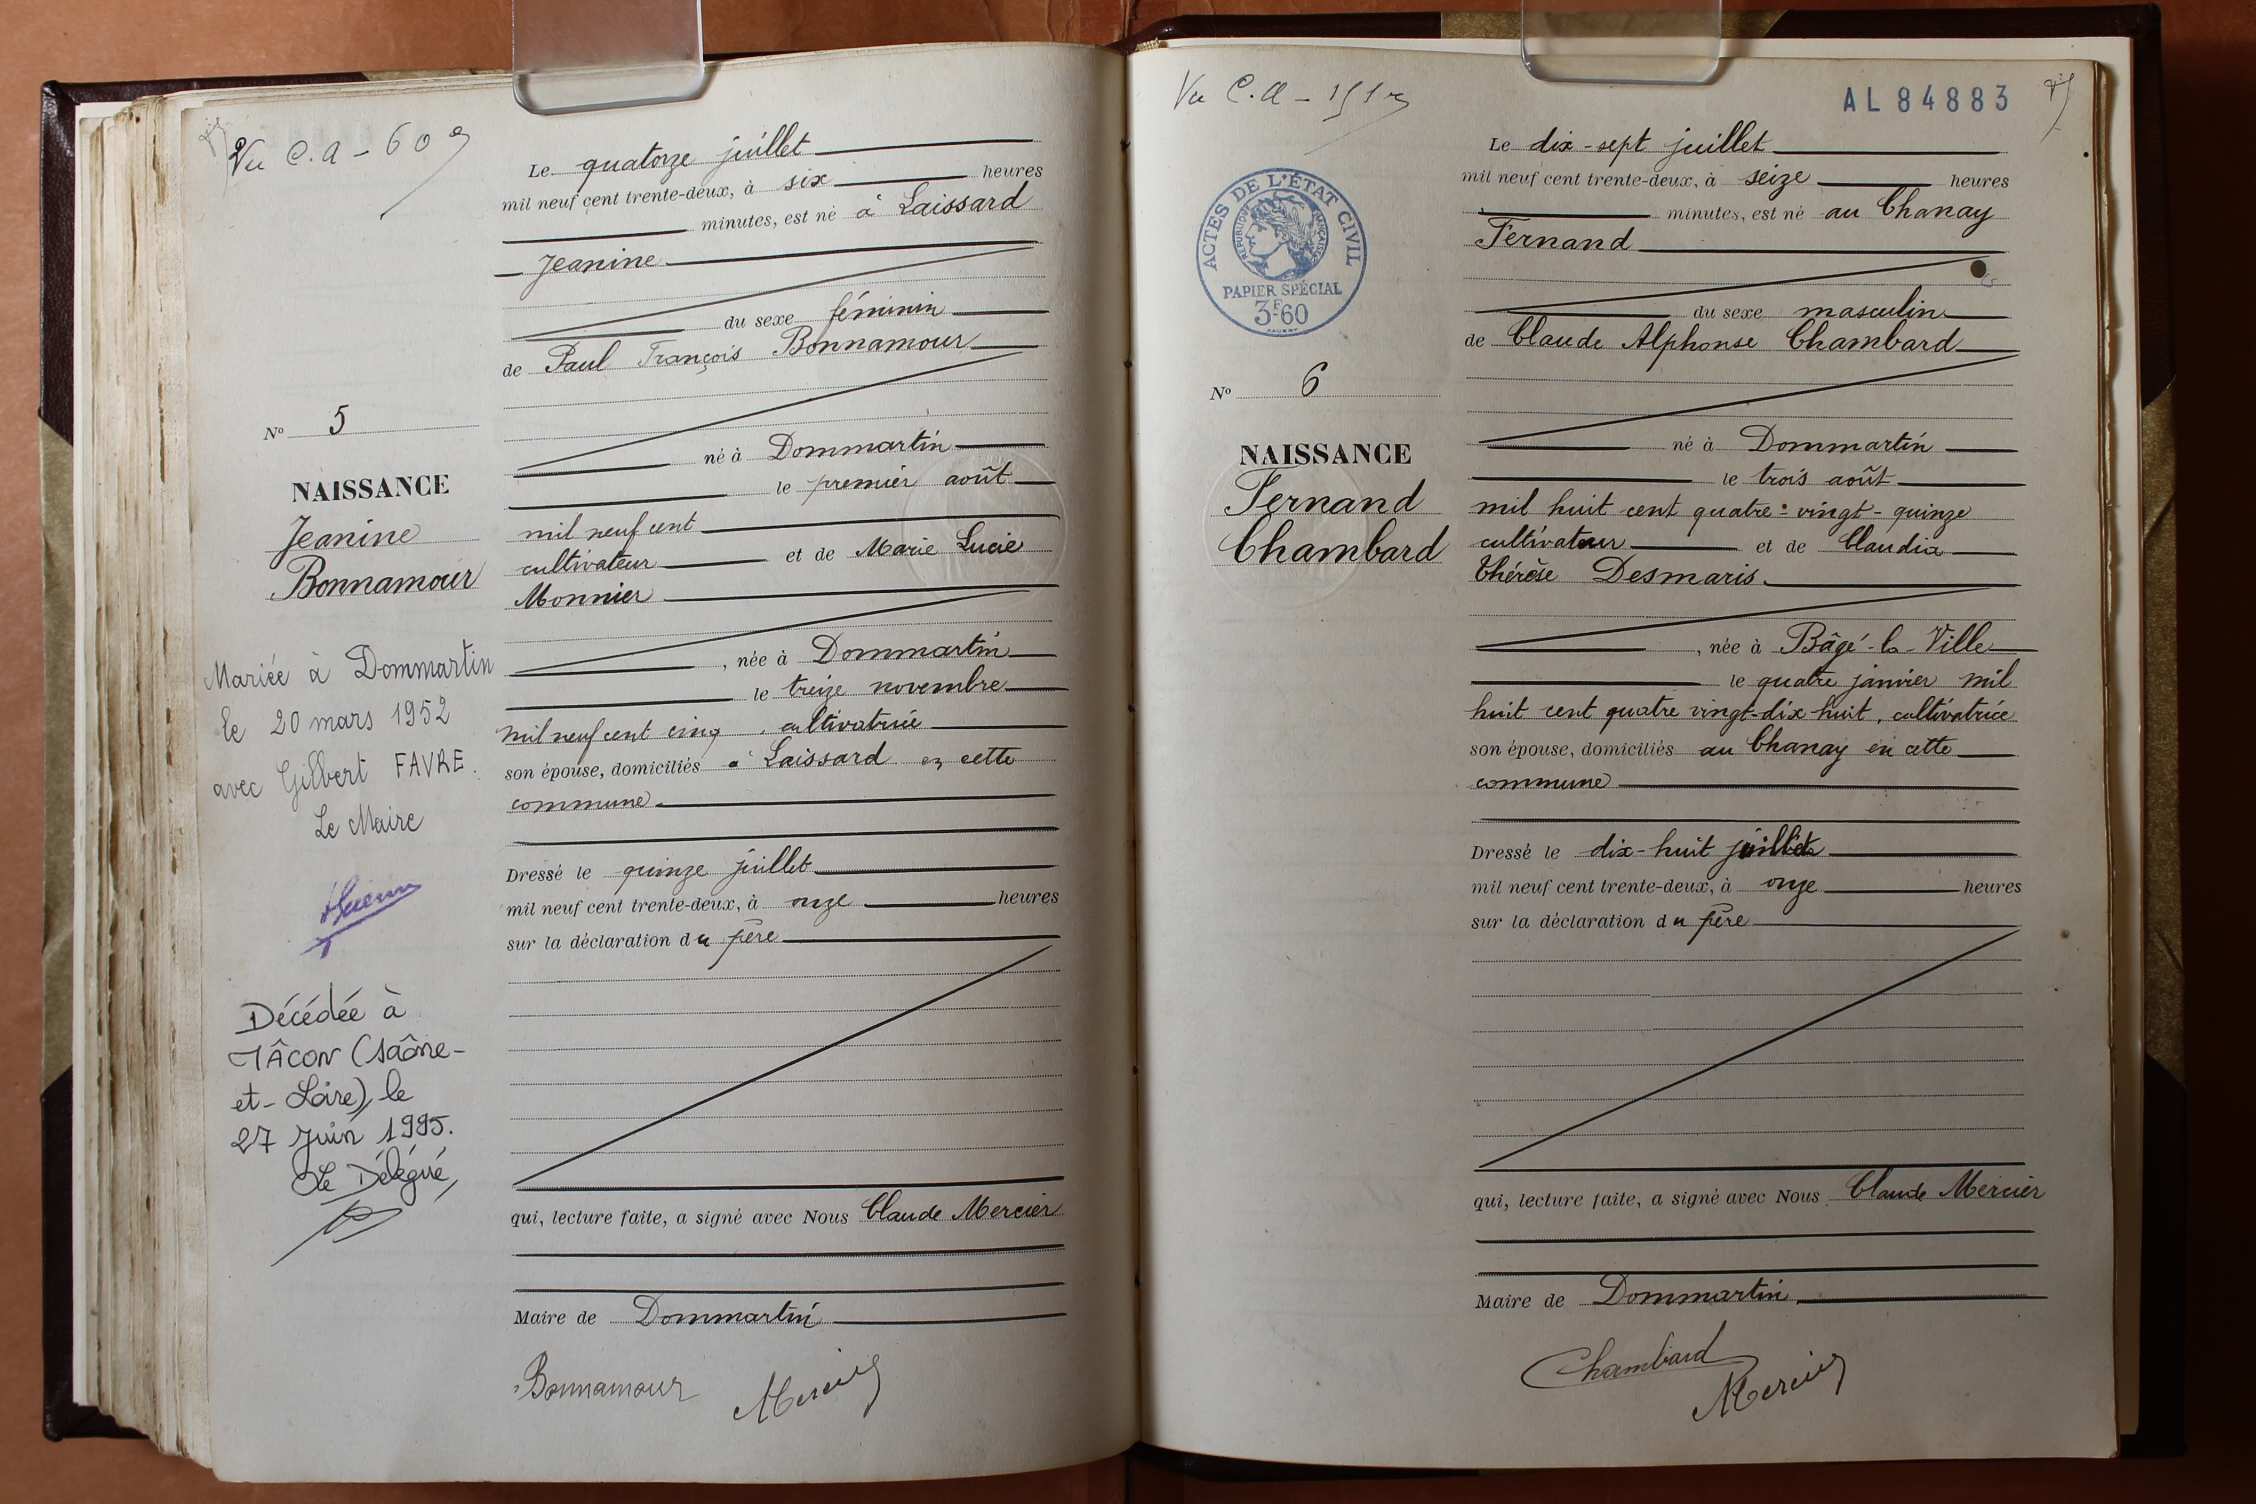 Vu C.a - 60
Le quatorze juillet
mil neuf cent trente-deux, à six heures
minutes, est né à Laissard
Jeanine
du sexe féminin
de Paul François Bonnamour
né à Dommartin
le premier août
mil neuf cent
cultivateur et de Marie Lucie
Monnier
, née à Dommartin
le treize novembre
mil neuf cent cinq, cultivatrice
son épouse, domiciliés à Laissard en cette
commune
Dressé le quinze juillet
mil neuf cent trente-deux, à onze heures
sur la déclaration du père
qui, lecture faite, a signé avec Nous Claude Mercier
Maire de Dommartin
Bonnamour Mercier
No 5
NAISSANCE
Jeanine
Bonnamour
Mariée à Dommartin
le 20 mars 1952
avec Gilbert FAVRE.
Le Maire
Décédée à
MÂCON (Saône-
et-Loire), le
27 Juin 1995.
Le Délégué,
Vu C.a -
AL 84883
ACTES DE L'ÉTAT CIVIL
RÉPUBLIQUE FRANÇAISE
PAPIER SPÉCIAL
3F60
No 6
NAISSANCE
Fernand
Chambard
Le dix-sept juillet
mil neuf cent trente-deux, à seize heures
minutes, est né au Chanay
Fernand
du sexe masculin
de Claude Alphonse Chambard
né à Dommartin
le trois août
mil huit cent quatre-vingt-quinze
cultivateur et de Claudia
Thérèse Desmaris
, née à Bâgé-la-Ville
le quatre janvier mil
huit cent quatre vingt-dix huit, cultivatrice
son épouse, domiciliés au Chanay en cette
commune
Dressé le dix-huit juillet
mil neuf cent trente-deux, à onze heures
sur la déclaration du père
qui, lecture faite, a signé avec Nous Claude Mercier
Maire de Dommartin
Chambard
Mercier